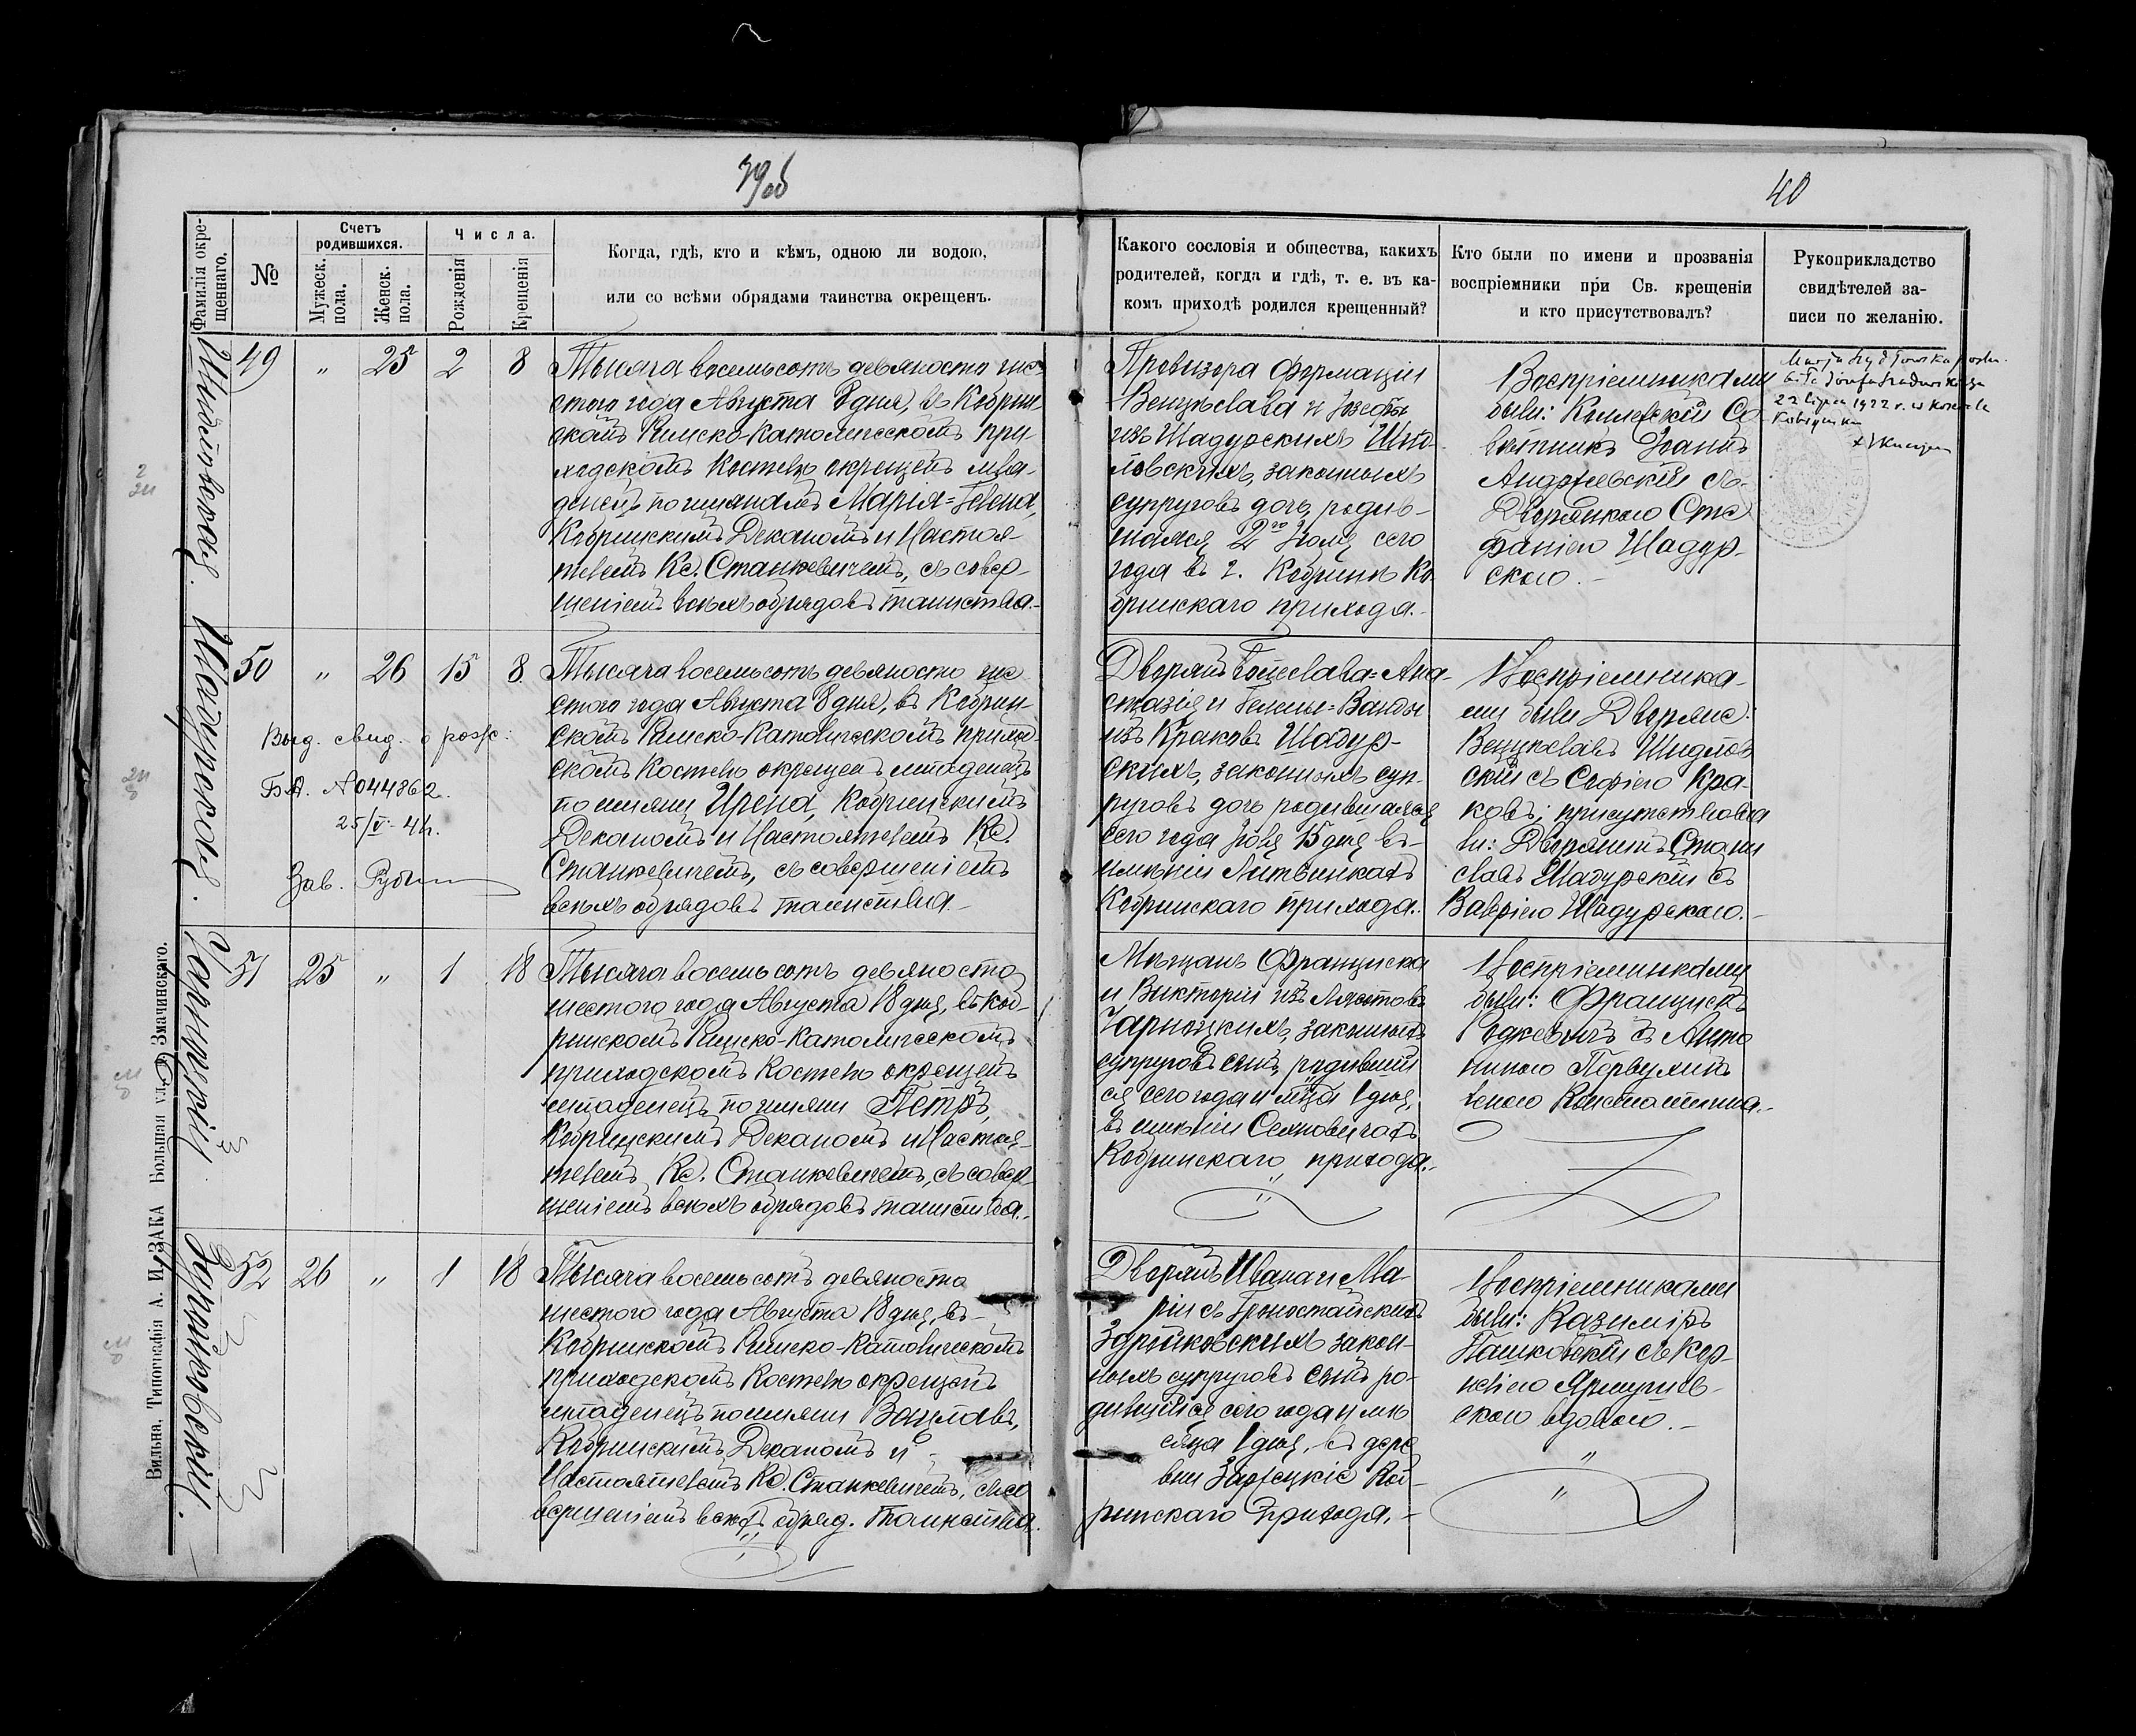 39об
40
Фамилія окрещеннаго.
№
Счетъ родившихся.
Мужеск. пола.
Женск. пола.
Числа.
Рожденія
Крещенія
Когда, гдѣ, кто и кѣмъ, одною ли водою,
или со всѣми обрядами таинства окрещенъ.
Какого сословія и общества, какихъ
родителей, когда и гдѣ, т. е. въ ка-
комъ приходѣ родился крещенный?
Кто были по имени и прозванія
воспріемники при Св. крещеніи
и кто присутствовалъ?
Рукоприкладство
свидѣтелей за-
писи по желанію.
49 „ 25 2 8
Тысяча восемьсотъ девяносто ше-
стого года Августа 8 дня, въ Кобрин-
скомъ Римско-Католическомъ при-
ходскомъ Костелѣ окрещенъ мла-
денецъ по именамъ Марія-Гелена,
Кобринскимъ Деканомъ и Настоя-
телемъ Кс. Станкевичемъ, съ совер-
шеніемъ всѣхъ обрядовъ таинства.-
Провизора Фармаціи
Венцеслава и Іозефы
изъ Шадурскихъ Шид-
ловскихъ, законныхъ
супруговъ дочь, родив-
шаяся 2го Іюля сего
года въ г. Кобринѣ Ко-
бринскаго прихода.-
Воспріемниками
были: Коллежскій Со-
вѣтникъ Іоаннъ
съ
Дворянкою Сте-
фаніею Шадур-
скою.-
22 lipca 1922 r. w
Шадурская.
50 „ 26 15 8
Тысяча восемьсотъ девяносто ше
стого года Августа 8 дня, въ Кобрин-
скомъ Римско-Католическомъ приход
скомъ Костелѣ окрещенъ младенецъ
по имени Ирена, Кобринскимъ
Деканомъ и Настоятелемъ Кс.
Станкевичемъ, съ совершеніемъ
всѣхъ обрядовъ таинства.-
Выд. свид. о рожд.
№ 044862.
25/V-
Зав.
Дворянъ Болеслава-Ана-
стазія и Гелены-Ванды
изъ Краковъ Шадур-
скихъ, законныхъ суп-
руговъ дочь родившаяся
сего года Іюля 15 дня въ
имѣніи Литвинкахъ
Кобринскаго прихода.
Воспріемника-
ми были Дворяне:
Венцеславъ Шидлов
скій съ Софіею Кра-
ковъ; присутствова
ли: Дворянинъ Стани
славъ Шадурскій съ
Валеріею Шадурскою.-
Чарноцкій
51 25 „ 1 18
Тысяча восемьсотъ девяносто
шестого года Августа 18 дня, въ Коб-
ринскомъ Римско-Католическомъ
приходскомъ Костелѣ окрещенъ
младенецъ по имени Петръ,
Кобринскимъ Деканомъ и Настоя-
телемъ Кс. Станкевичемъ, съ совер-
шеніемъ всѣхъ обрядовъ таинства.-
Мѣщанъ Франциска
и Викторіи изъ
Чарноцкихъ, законныхъ
супруговъ сынъ, родившій
ся сего года и м-ца 1 дня,
въ имѣніи
Кобринскаго прихода.-
Воспріемниками
были: Францискъ
съ Анто
ниною
женою Константина.-
52 26 „ 1 18
Тысяча восемьсотъ девяносто
шестого года Августа 18 дня, въ
Кобринскомъ Римско-Католическомъ
приходскомъ Костелѣ окрещенъ
младенецъ по имени Вацлавъ,
Кобринскимъ Деканомъ и
Настоятелемъ Кс. Станкевичемъ, съ со
вершеніемъ всѣхъ обряд. Таинства.
Дворянъ Ивана и Ма-
ріи съ Гроностайскихъ
закон-
ныхъ супруговъ сынъ ро-
дившійся сего года и мѣ
сяца 1 дня, въ дере
вни Коб-
ринскаго прихода.-
Воспріемниками
были: Казиміръ
съ Кор-
неліею
скою вдовою.-
Вильна. Типографія А. И. ЗАКА Большая ул. д. Змачинскаго.